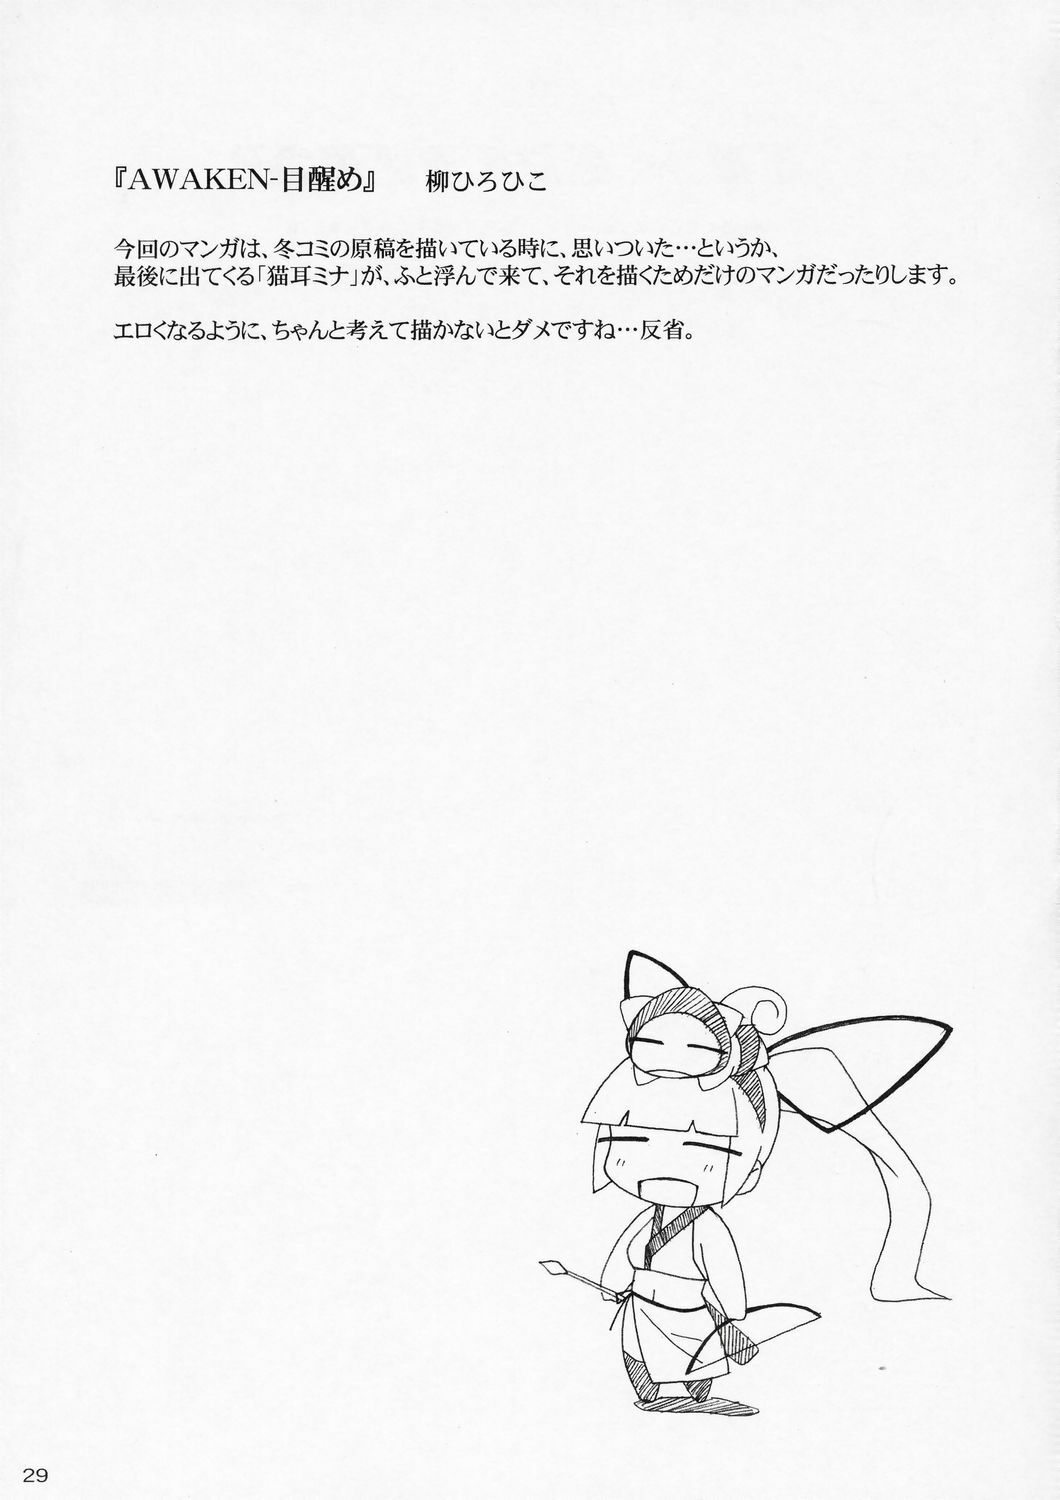 『AWAKEN-目醒め』　柳ひろひこ
今回のマンガは、冬コミの原稿を描いている時に、思いついた…というか、
最後に出てくる「猫耳ミナ」が、ふと浮んで来て、それを描くためだけのマンガだったりします。
エロくなるように、ちゃんと考えて描かないとダメですね…反省。
29